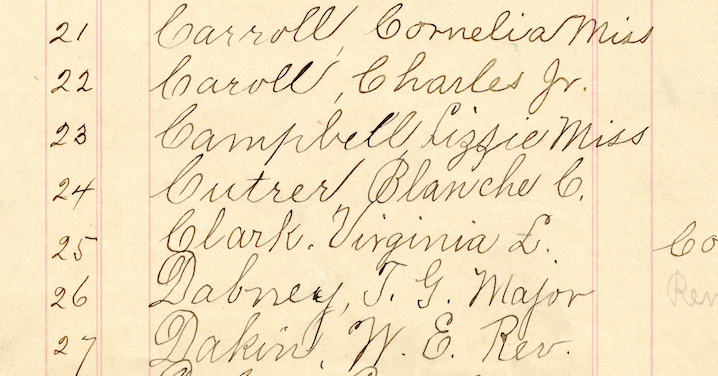 21 Carroll, Cornelia Miss
22 Caroll, Charles Jr.
23 Campbell, Lizzie Miss
24 Cutrer, Blanche C.
25 Clark. Virginia L. Co
26 Dabney, T. G. Major Rev
27 Dakin, W. E. Rev.